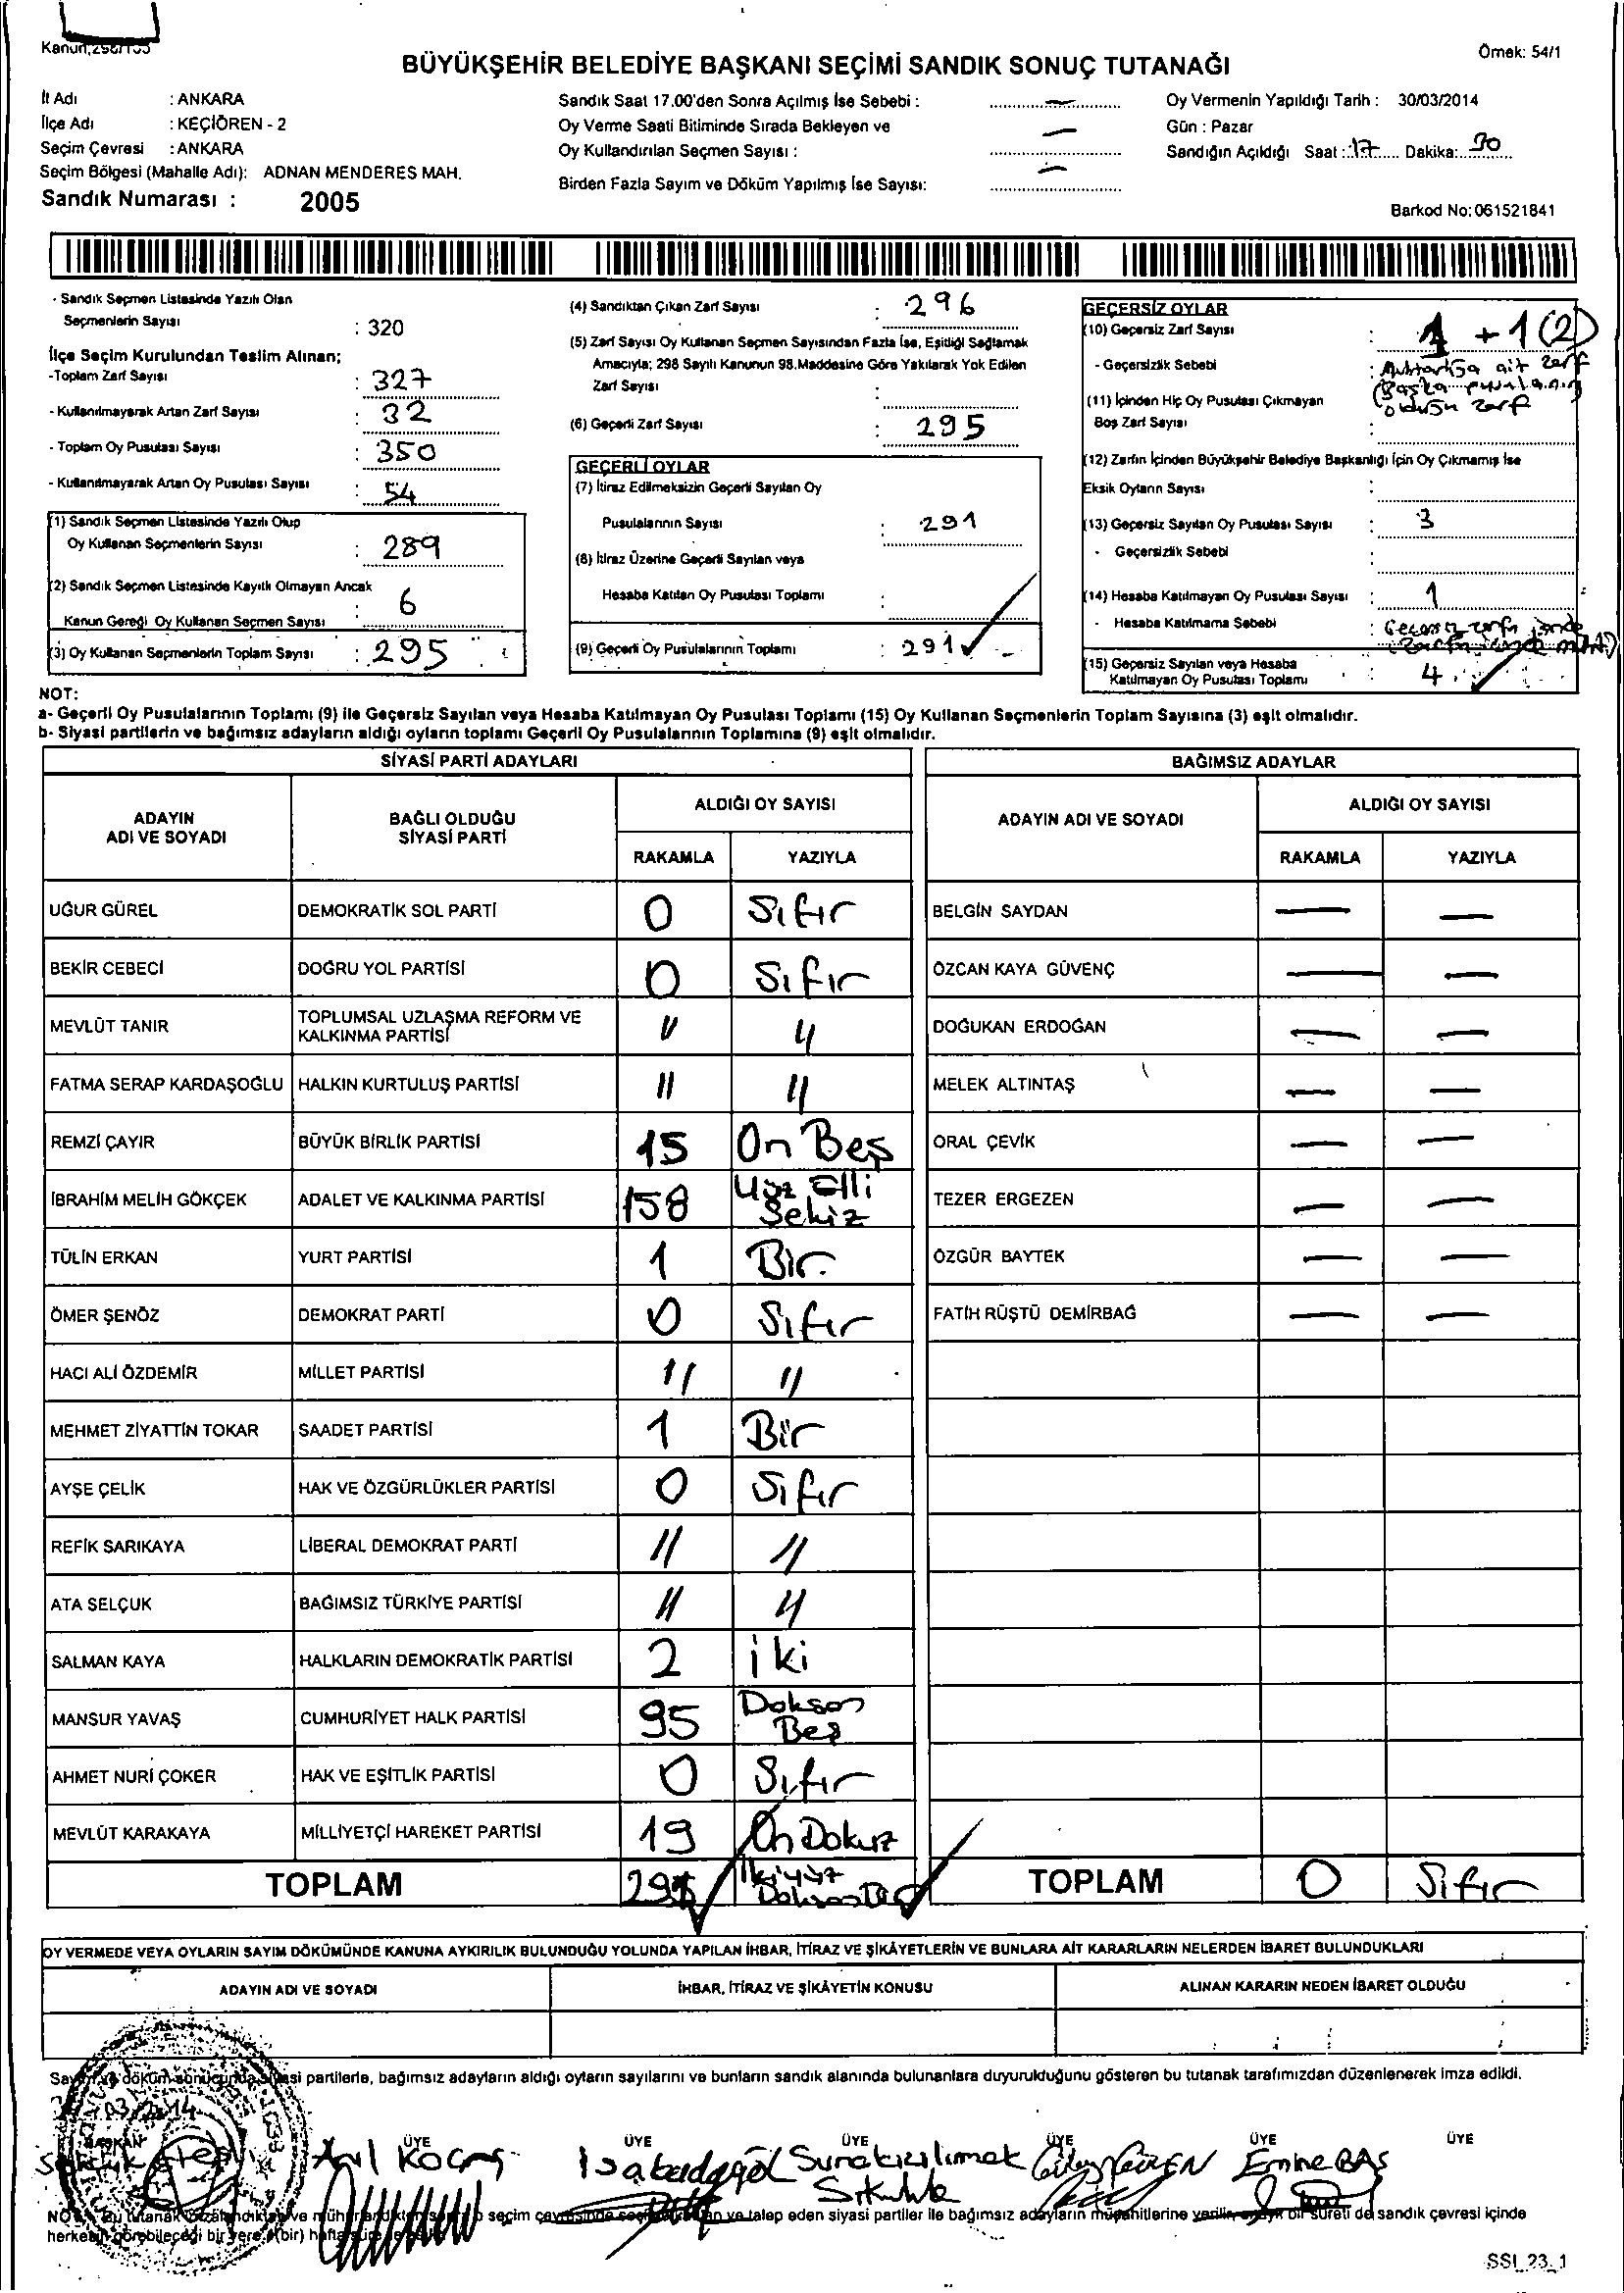 Kanun;298/105
Örnek: 54/1
BÜYÜKŞEHİR BELEDİYE BAŞKANI SEÇİMİ SANDIK SONUÇ TUTANAĞI
İl Adı : ANKARA
İlçe Adı : KEÇİÖREN - 2
Seçim Çevresi : ANKARA
Seçim Bölgesi (Mahalle Adı): ADNAN MENDERES MAH.
Sandık Numarası : 2005
Sandık Saat 17.00'den Sonra Açılmış İse Sebebi : —
Oy Verme Saati Bitiminde Sırada Bekleyen ve
Oy Kullandırılan Seçmen Sayısı : —
Birden Fazla Sayım ve Döküm Yapılmış İse Sayısı: —
Oy Vermenin Yapıldığı Tarih : 30/03/2014
Gün : Pazar
Sandığın Açıldığı Saat : 17 Dakika:
Barkod No: 061521841
- Sandık Seçmen Listesinde Yazılı Olan
Seçmenlerin Sayısı : 320
İlçe Seçim Kurulundan Teslim Alınan;
-Toplam Zarf Sayısı : 327
- Kullanılmayarak Artan Zarf Sayısı : 32
- Toplam Oy Pusulası Sayısı : 350
- Kullanılmayarak Artan Oy Pusulası Sayısı : 54
(1) Sandık Seçmen Listesinde Yazılı Olup
Oy Kullanan Seçmenlerin Sayısı : 289
(2) Sandık Seçmen Listesinde Kayıtlı Olmayan Ancak
Kanun Gereği Oy Kullanan Seçmen Sayısı : 6
(3) Oy Kullanan Seçmenlerin Toplam Sayısı : 295
(4) Sandıktan Çıkan Zarf Sayısı : 296
(5) Zarf Sayısı Oy Kullanan Seçmen Sayısından Fazla İse, Eşitliği Sağlamak
Amacıyla; 298 Sayılı Kanunun 98.Maddesine Göre Yakılarak Yok Edilen
Zarf Sayısı :
(6) Geçerli Zarf Sayısı : 295
GEÇERLİ OYLAR
(7) İtiraz Edilmeksizin Geçerli Sayılan Oy
Pusulalarının Sayısı : 291
(8) İtiraz Üzerine Geçerli Sayılan veya
Hesaba Katılan Oy Pusulası Toplamı :
(9) Geçerli Oy Pusulalarının Toplamı : 291
GEÇERSİZ OYLAR
(10) Geçersiz Zarf Sayısı : 1 + 1 (2)
- Geçersizlik Sebebi : Muhtarlığa ait zarf
(Başka pusulanın
olduğu zarf
(11) İçinden Hiç Oy Pusulası Çıkmayan
Boş Zarf Sayısı :
(12) Zarfın İçinden Büyükşehir Belediye Başkanlığı İçin Oy Çıkmamış İse
Eksik Oyların Sayısı :
(13) Geçersiz Sayılan Oy Pusulası Sayısı : 3
- Geçersizlik Sebebi :
(14) Hesaba Katılmayan Oy Pusulası Sayısı : 1
- Hesaba Katılmama Sebebi : Geçersiz zarfın içinde
(15) Geçersiz Sayılan veya Hesaba
Katılmayan Oy Pusulası Toplamı : 4
NOT:
a- Geçerli Oy Pusulalarının Toplamı (9) ile Geçersiz Sayılan veya Hesaba Katılmayan Oy Pusulası Toplamı (15) Oy Kullanan Seçmenlerin Toplam Sayısına (3) eşit olmalıdır.
b- Siyasi partilerin ve bağımsız adayların aldığı oyların toplamı Geçerli Oy Pusulalarının Toplamına (9) eşit olmalıdır.
SİYASİ PARTİ ADAYLARI
BAĞIMSIZ ADAYLAR
ADAYIN ADI VE SOYADI
BAĞLI OLDUĞU SİYASİ PARTİ
ALDIĞI OY SAYISI
RAKAMLA YAZIYLA
ADAYIN ADI VE SOYADI
ALDIĞI OY SAYISI
RAKAMLA YAZIYLA
UĞUR GÜREL DEMOKRATİK SOL PARTİ 0 Sıfır BELGİN SAYDAN — —
BEKİR CEBECİ DOĞRU YOL PARTİSİ 0 Sıfır ÖZCAN KAYA GÜVENÇ — —
MEVLÜT TANIR TOPLUMSAL UZLAŞMA REFORM VE KALKINMA PARTİSİ " " DOĞUKAN ERDOĞAN — —
FATMA SERAP KARDAŞOĞLU HALKIN KURTULUŞ PARTİSİ " " MELEK ALTINTAŞ — —
REMZİ ÇAYIR BÜYÜK BİRLİK PARTİSİ 15 On Beş ORAL ÇEVİK — —
İBRAHİM MELİH GÖKÇEK ADALET VE KALKINMA PARTİSİ 158 Yüz Elli Sekiz TEZER ERGEZEN — —
TÜLİN ERKAN YURT PARTİSİ 1 Bir. ÖZGÜR BAYTEK — —
ÖMER ŞENÖZ DEMOKRAT PARTİ 0 Sıfır FATİH RÜŞTÜ DEMİRBAĞ — —
HACI ALİ ÖZDEMİR MİLLET PARTİSİ " "
MEHMET ZİYATTİN TOKAR SAADET PARTİSİ 1 Bir
AYŞE ÇELİK HAK VE ÖZGÜRLÜKLER PARTİSİ 0 Sıfır
REFİK SARIKAYA LİBERAL DEMOKRAT PARTİ " "
ATA SELÇUK BAĞIMSIZ TÜRKİYE PARTİSİ " "
SALMAN KAYA HALKLARIN DEMOKRATİK PARTİSİ 2 iki
MANSUR YAVAŞ CUMHURİYET HALK PARTİSİ 95 Doksan Beş
AHMET NURİ ÇOKER HAK VE EŞİTLİK PARTİSİ 0 Sıfır
MEVLÜT KARAKAYA MİLLİYETÇİ HAREKET PARTİSİ 19 On Dokuz
TOPLAM İkiyüz TOPLAM 0 Sıfır
OY VERMEDE VEYA OYLARIN SAYIM DÖKÜMÜNDE KANUNA AYKIRILIK BULUNDUĞU YOLUNDA YAPILAN İHBAR, İTİRAZ VE ŞİKÂYETLERİN VE BUNLARA AİT KARARLARIN NELERDEN İBARET BULUNDUKLARI
ADAYIN ADI VE SOYADI İHBAR, İTİRAZ VE ŞİKÂYETİN KONUSU ALINAN KARARIN NEDEN İBARET OLDUĞU
Sayım ve döküm sonucunda siyasi partilerle, bağımsız adayların aldığı oyların sayılarını ve bunların sandık alanında bulunanlara duyurulduğunu gösteren bu tutanak tarafımızdan düzenlenerek imza edildi.
03/2014
BAŞKAN ÜYE ÜYE ÜYE ÜYE ÜYE ÜYE
Emine BAŞ
seçim çevresinde ve talep eden siyasi partiler ile bağımsız adayların müşahitlerine bir sureti de sandık çevresi içinde
herkesin görebileceği bir yere (bir) hafta süre
SSI_23_1